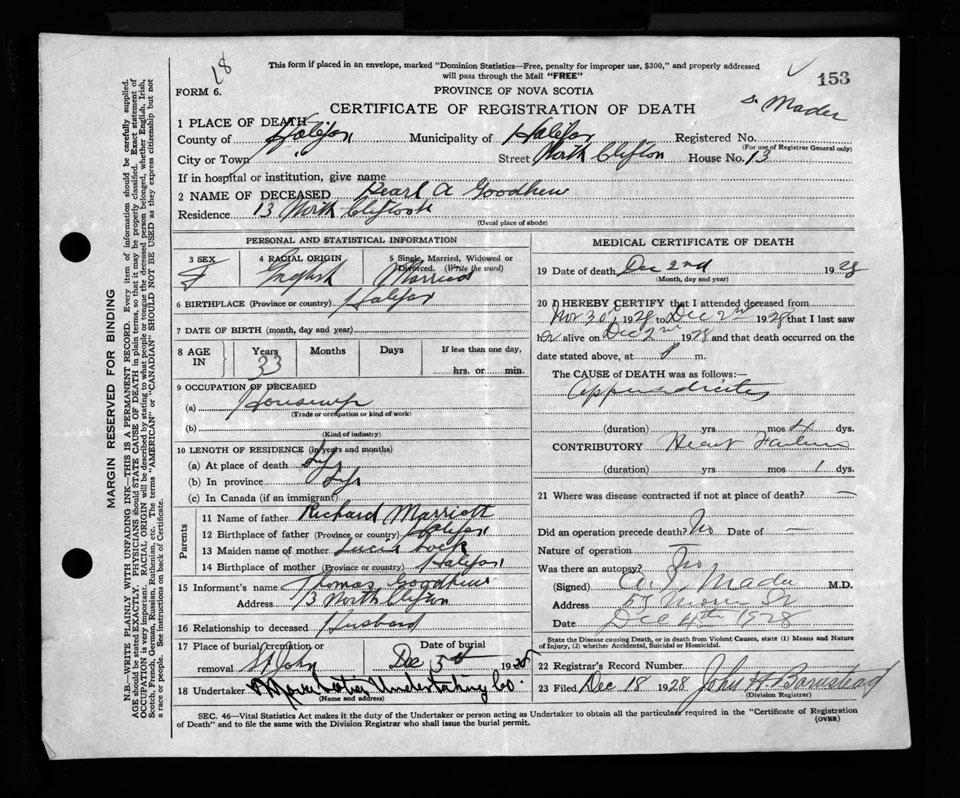 18
This form if placed in an envelope, marked "Dominion Statistics—Free, penalty for improper use, $300," and properly addressed
will pass through the Mail "FREE"
153
FORM 6.
PROVINCE OF NOVA SCOTIA
CERTIFICATE OF REGISTRATION OF DEATH
Dr Mader
1 PLACE OF DEATH
County of Halifax Municipality of Halifax Registered No.
(For use of Registrar General only)
City or Town Street North Clifton House No. 13
If in hospital or institution, give name
2 NAME OF DECEASED Pearl A Goodhew
Residence 13 North
(Usual place of abode)
PERSONAL AND STATISTICAL INFORMATION
3 SEX F
4 RACIAL ORIGIN English
5 Single, Married, Widowed or Divorced. (Write the word) Married
6 BIRTHPLACE (Province or country) Halifax
7 DATE OF BIRTH (month, day and year)
8 AGE IN Years 33 Months Days If less than one day,
hrs. or min.
9 OCCUPATION OF DECEASED
(a) Housewife
(Trade or occupation or kind of work)
(b)
(Kind of industry)
10 LENGTH OF RESIDENCE (in years and months)
(a) At place of death Life
(b) In province Life
(c) In Canada (if an immigrant)
Parents
11 Name of father Richard Marriott
12 Birthplace of father (Province or country) Halifax
13 Maiden name of mother
14 Birthplace of mother (Province or country) Halifax
15 Informant's name Thomas Goodhew
Address 13 North Clifton
16 Relationship to deceased Husband
17 Place of burial, cremation or removal St John
Date of burial Dec 5th 1928
18 Undertaker Undertaking Co.
(Name and address)
MEDICAL CERTIFICATE OF DEATH
19 Date of death Dec 2nd 1928
(Month, day and year)
20 I HEREBY CERTIFY that I attended deceased from
Nov 30th 1928 to Dec 2nd 1928 that I last saw
her alive on Dec 2nd 1928 and that death occurred on the
date stated above, at m.
The CAUSE of DEATH was as follows:—
Appendicitis
(duration) yrs mos 4 dys.
CONTRIBUTORY Heart Failure
(duration) yrs mos 1 dys.
21 Where was disease contracted if not at place of death? —
Did an operation precede death? No Date of —
Nature of operation —
Was there an autopsy? No
(Signed) Mader M.D.
Address 57 Morris St
Date Dec 4th 1928
State the Disease causing Death, or in death from Violent Causes, state (1) Means and Nature
of Injury, (2) whether Accidental, Suicidal or Homicidal.
22 Registrar's Record Number
23 Filed Dec 18 1928 John H Barnstead
(Division Registrar)
SEC. 46—Vital Statistics Act makes it the duty of the Undertaker or person acting as Undertaker to obtain all the particulars required in the "Certificate of Registration
of Death" and to file the same with the Division Registrar who shall issue the burial permit.
(OVER)
MARGIN RESERVED FOR BINDING
N.B.—WRITE PLAINLY WITH UNFADING INK—THIS IS A PERMANENT RECORD. Every item of information should be carefully supplied.
AGE should be stated EXACTLY. PHYSICIANS should STATE CAUSE OF DEATH in plain terms, so that it may be properly classified. Exact statement of
OCCUPATION is very important. RACIAL ORIGIN will be described by stating to what people or tongue the deceased person belonged, whether English, Irish,
Scotch, French, German, Russian, Ruthenian, etc. The terms "AMERICAN" or "CANADIAN" SHOULD NOT BE USED as they express citizenship but not
a race or people. See instructions on back of Certificate.